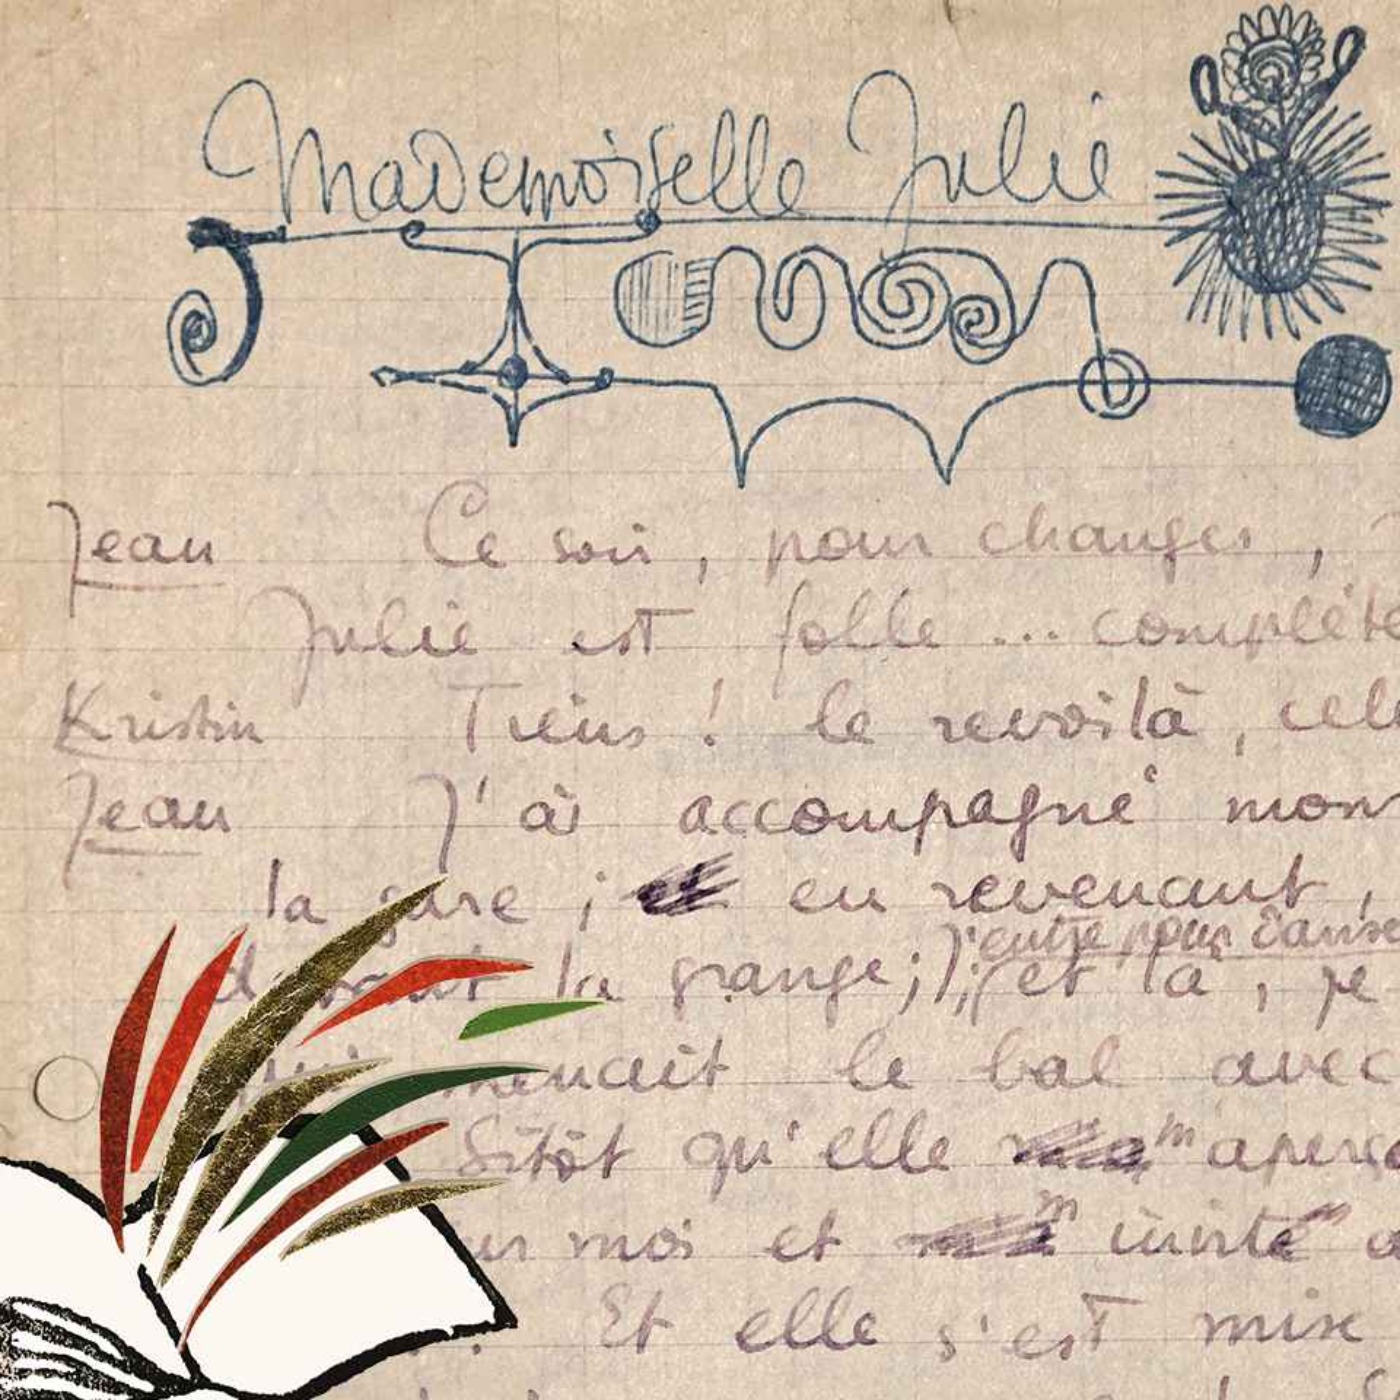 Mademoiselle Julie
Jean Ce soir, pour changer,
Julie est folle ... complète
Kristin Tiens ! le revoilà, cel
Jean J'ai accompagné mon
la gare ; et en revenant,
j'entre pour danse
devant la grange ; et là, je
menait le bal avec
Sitôt qu'elle m'aperç
moi et m'invite
. Et elle s'est mise